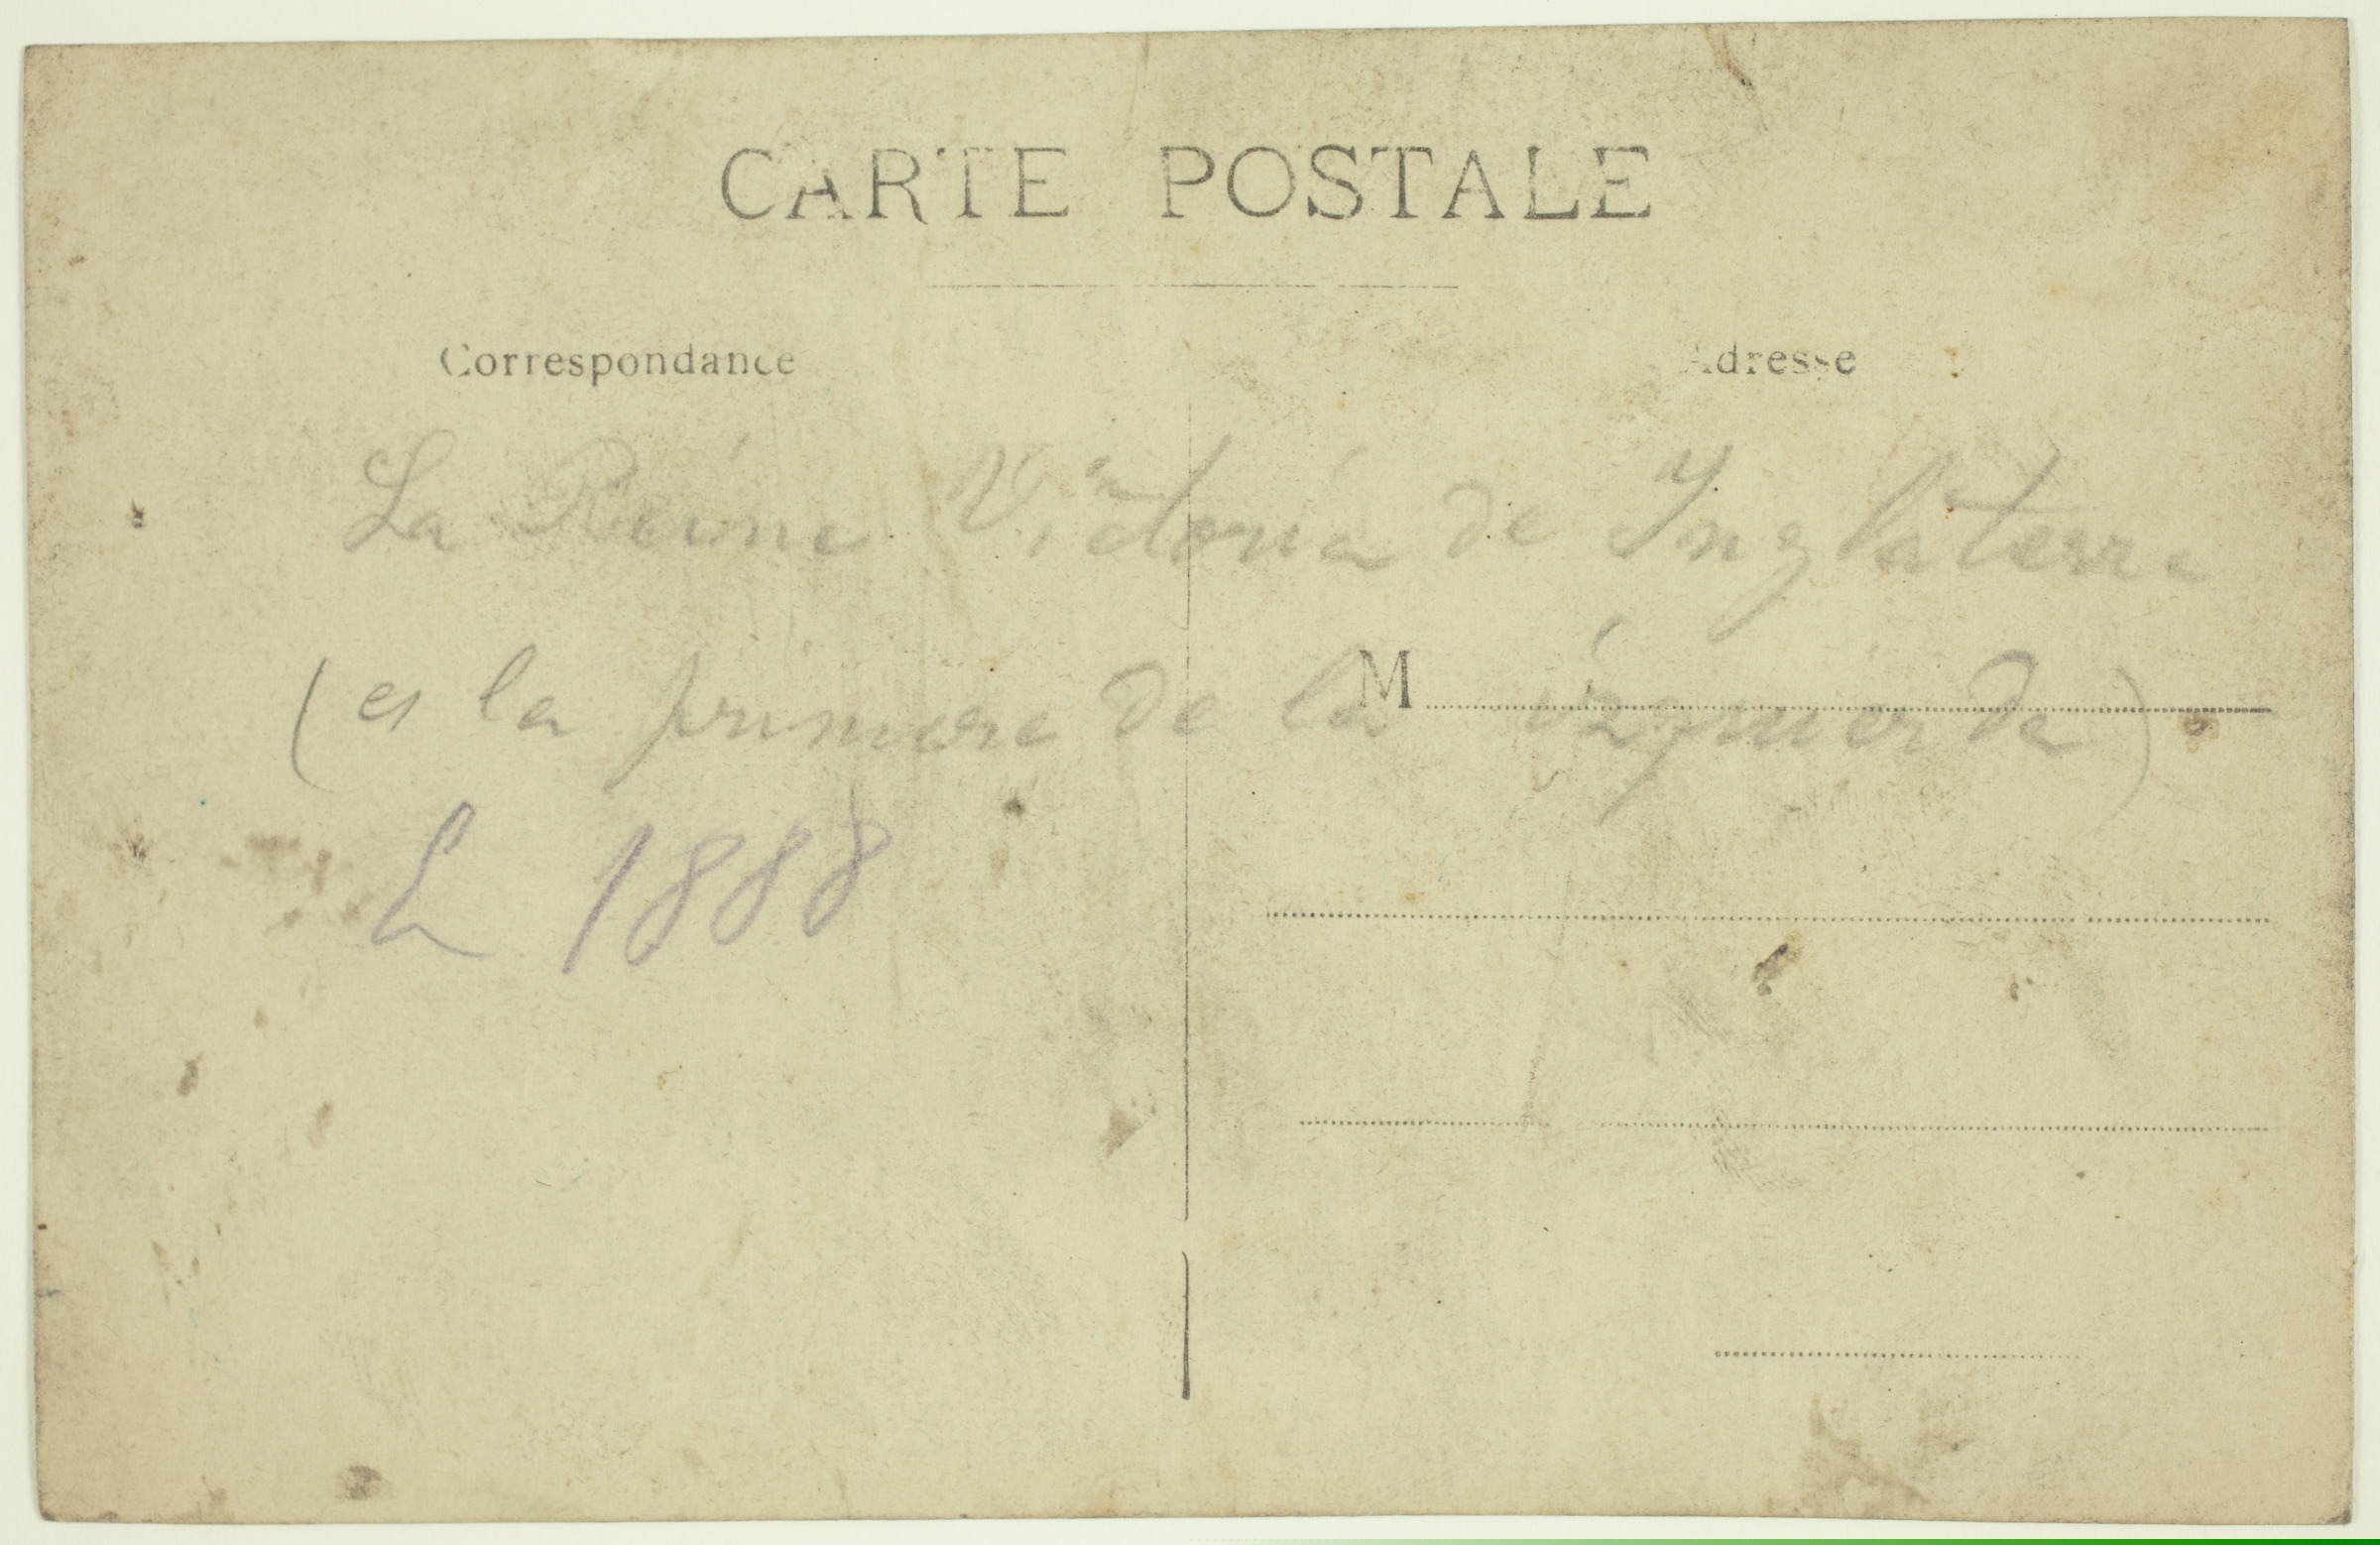 CARTE POSTALE
Correspondance
Adresse
La Reine Victoria de Inglaterra
M
(es la primera de la izquierda)
L 1888